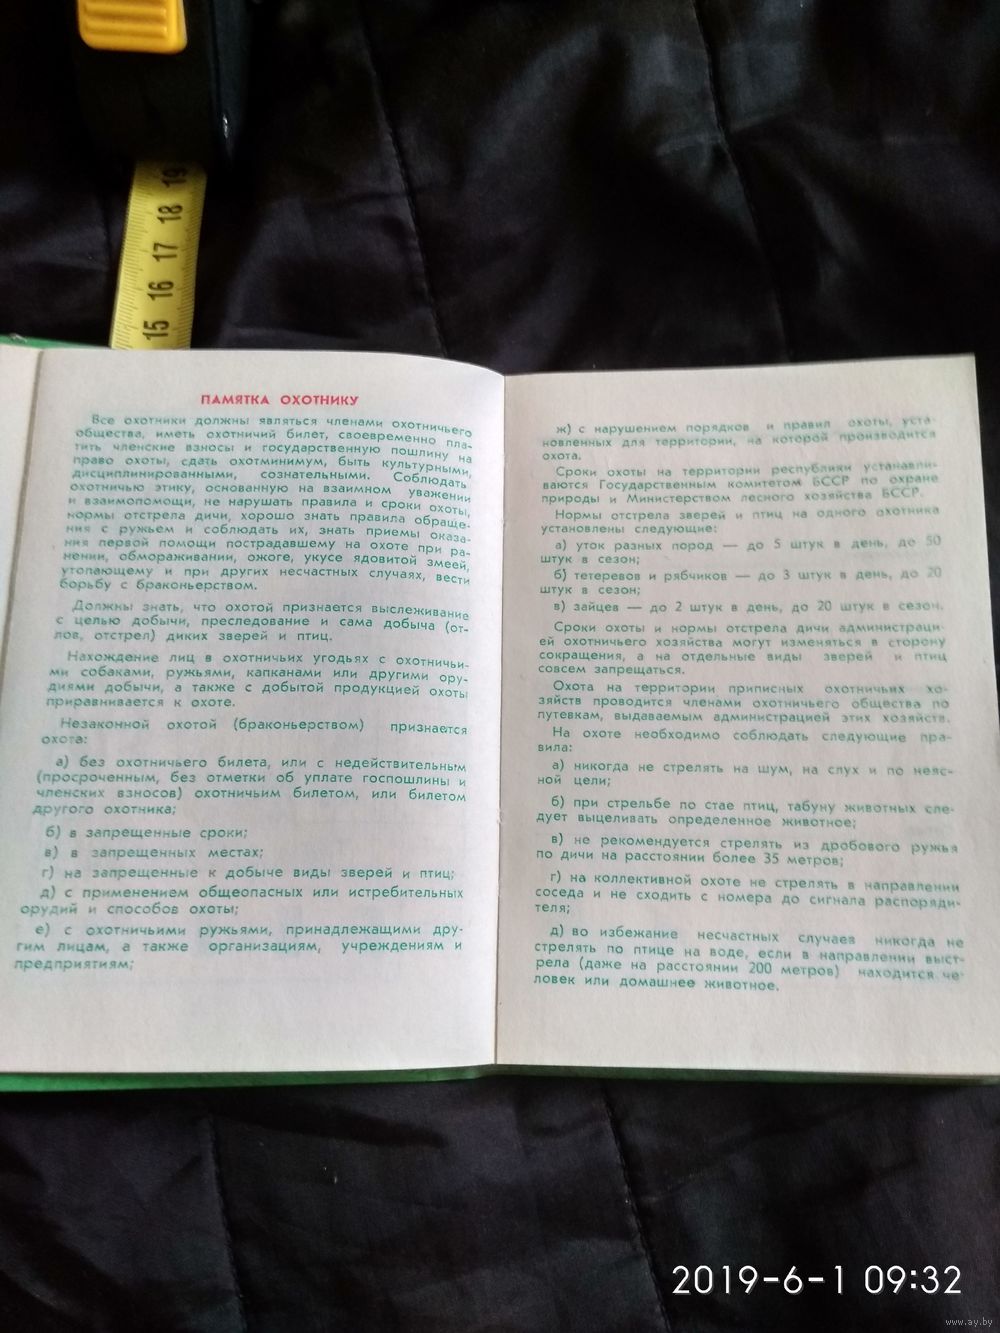 19
18
17
16
15
ПАМЯТКА ОХОТНИКУ
Все охотники должны являться членами охотничьего
общества, иметь охотничий билет, своевременно пла-
тить членские взносы и государственную пошлину на
право охоты, сдать охотминимум, быть культурными,
дисциплинированными, сознательными. Соблюдать
охотничью этику, основанную на взаимном уважении
и взаимопомощи, не нарушать правила и сроки охоты,
нормы отстрела дичи, хорошо знать правила обраще-
ния с ружьем и соблюдать их, знать приемы оказа-
ния первой помощи пострадавшему на охоте при ра-
нении, обмораживании, ожоге, укусе ядовитой змеей,
утопающему и при других несчастных случаях, вести
борьбу с браконьерством.
Должны знать, что охотой признается выслеживание
с целью добычи, преследование и сама добыча (от-
лов, отстрел) диких зверей и птиц.
Нахождение лиц в охотничьих угодьях с охотничьи-
ми собаками, ружьями, капканами или другими ору-
диями добычи, а также с добытой продукцией охоты
приравнивается к охоте.
Незаконной охотой (браконьерством) признается
охота:
а) без охотничьего билета, или с недействительным
(просроченным, без отметки об уплате госпошлины и
членских взносов) охотничьим билетом, или билетом
другого охотника;
б) в запрещенные сроки;
в) в запрещенных местах;
г) на запрещенные к добыче виды зверей и птиц;
д) с применением общеопасных или истребительных
орудий и способов охоты;
е) с охотничьими ружьями, принадлежащими дру-
гим лицам, а также организациям, учреждениям и
предприятиям;
ж) с нарушением порядков и правил охоты, уста-
новленных для территории, на которой производится
охота.
Сроки охоты на территории республики устанавли-
ваются Государственным комитетом БССР по охране
природы и Министерством лесного хозяйства БССР.
Нормы отстрела зверей и птиц на одного охотника
установлены следующие:
а) уток разных пород — до 5 штук в день, до 50
штук в сезон;
б) тетеревов и рябчиков — до 3 штук в день, до 20
штук в сезон;
в) зайцев — до 2 штук в день, до 20 штук в сезон.
Сроки охоты и нормы отстрела дичи администраци-
ей охотничьего хозяйства могут изменяться в сторону
сокращения, а на отдельные виды зверей и птиц
совсем запрещаться.
Охота на территории приписных охотничьих хо-
зяйств проводится членами охотничьего общества по
путевкам, выдаваемым администрацией этих хозяйств.
На охоте необходимо соблюдать следующие пра-
вила:
а) никогда не стрелять на шум, на слух и по неяс-
ной цели;
б) при стрельбе по стае птиц, табуну животных сле-
дует выцеливать определенное животное;
в) не рекомендуется стрелять из дробового ружья
по дичи на расстоянии более 35 метров;
г) на коллективной охоте не стрелять в направлении
соседа и не сходить с номера до сигнала распоряди-
теля;
д) во избежание несчастных случаев никогда не
стрелять по птице на воде, если в направлении выст-
рела (даже на расстоянии 200 метров) находится че-
ловек или домашнее животное.
2019-6-1 09:32
www.ay.by